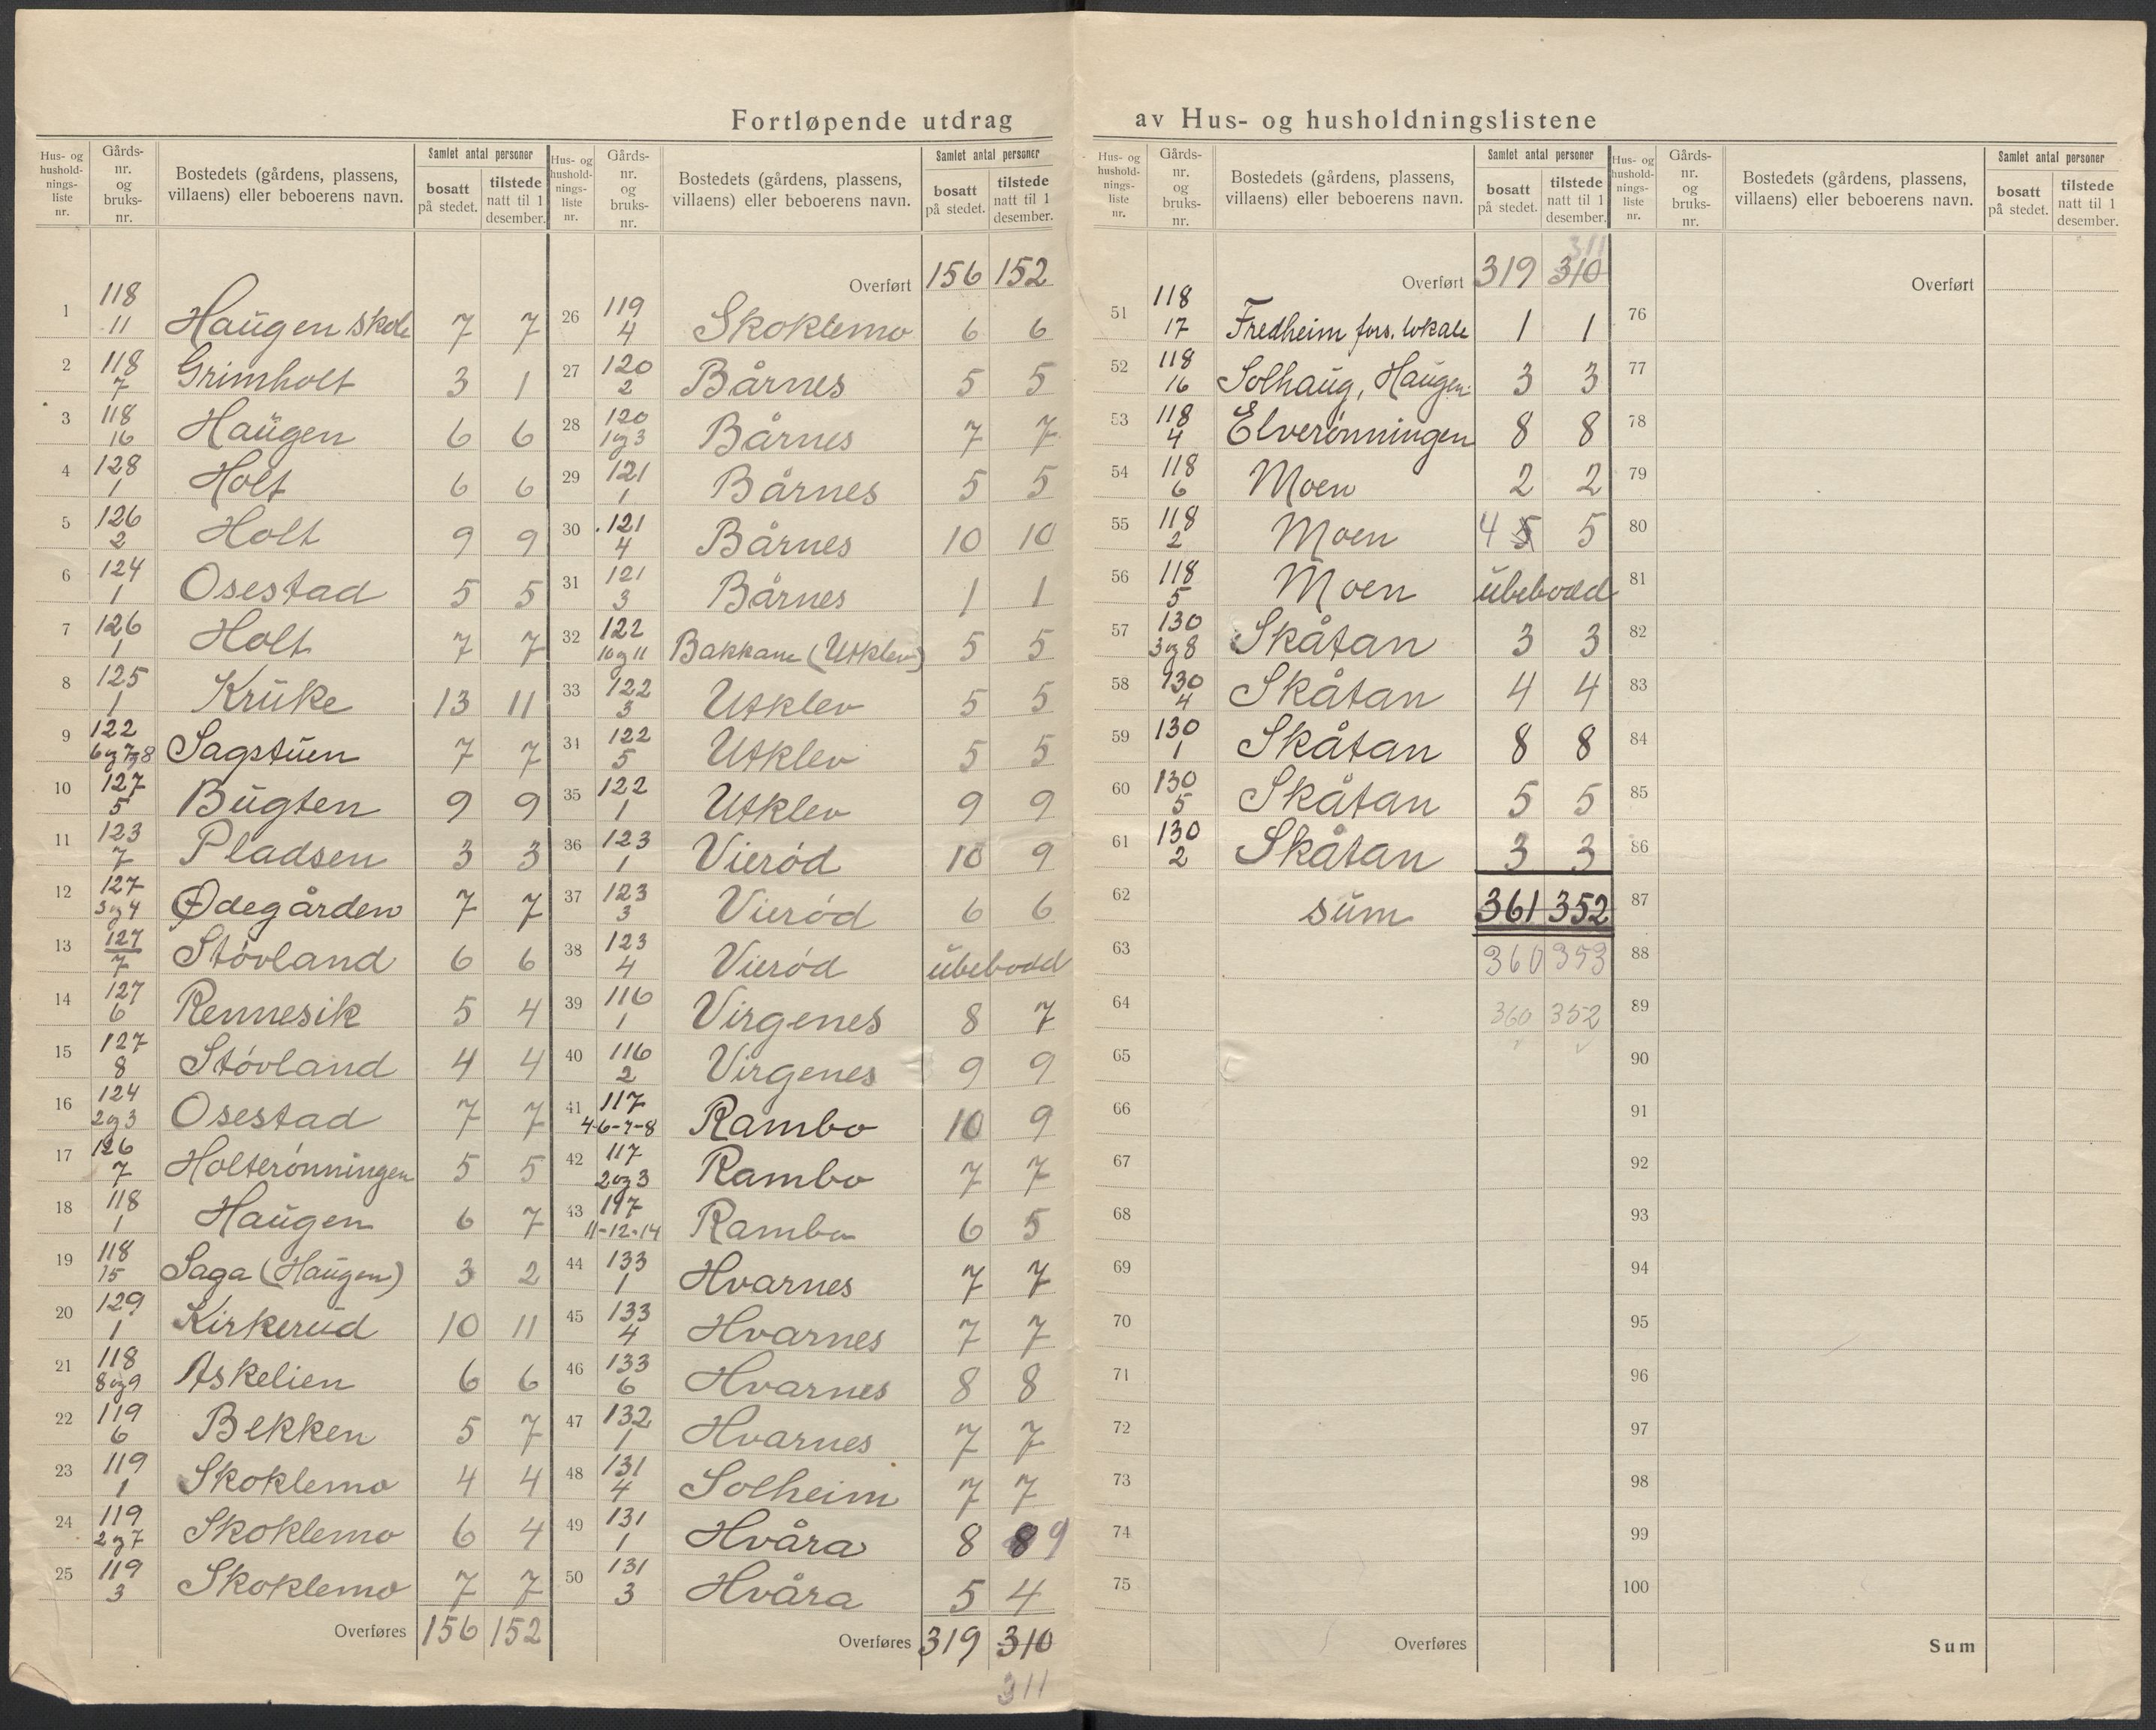 Fortløpende utdrag av Hus- og husholdningslistene
Hus- og hushold-nings-liste nr. Gårds-nr. og bruks-nr. Bostedets (gårdens, plassens, villaens) eller beboerens navn. Samlet antal personer bosatt på stedet. tilstede natt til 1 desember.
1 118 11 Haugen skole 7 7
2 118 7 Grimholt 3 1
3 118 16 Haugen 6 6
4 128 1 Holt 6 6
5 126 2 Holt 9 9
6 124 1 Osestad 5 5
7 126 1 Holt 7 7
8 125 1 Kruke 13 11
9 122 6og7og8 Sagstuen 7 7
10 127 5 Bugten 9 9
11 123 7 Pladsen 3 3
12 127 3og4 Ødegården 7 7
13 127 7 Støvland 6 6
14 127 6 Rennesik 5 4
15 127 8 Støvland 4 4
16 124 2og3 Osestad 7 7
17 126 7 Holterønningen 5 5
18 118 1 Haugen 6 7
19 118 15 Saga (Haugen) 3 2
20 129 1 Kirkerud 10 11
21 118 8og9 Askelien 6 6
22 119 6 Bekken 5 7
23 119 1 Skoklemo 4 4
24 119 2og7 Skoklemo 6 4
25 119 3 Skoklemo 7 7
Overføres 156 152
Hus- og hushold-nings-liste nr. Gårds-nr. og bruks-nr. Bostedets (gårdens, plassens, villaens) eller beboerens navn. Samlet antal personer bosatt på stedet. tilstede natt til 1 desember.
Overført 156 152
26 119 4 Skoklemo 6 6
27 120 2 Bårnes 5 5
28 120 1og3 Bårnes 7 7
29 121 1 Bårnes 5 5
30 121 4 Bårnes 10 10
31 121 3 Bårnes 1 1
32 122 10og11 Bakkane (Utklev) 5 5
33 122 3 Utklev 5 5
34 122 5 Utklev 5 5
35 122 1 Utklev 9 9
36 123 1 Vierød 10 9
37 123 3 Vierød 6 6
38 123 4 Vierød ubebodd
39 116 1 Virgenes 8 7
40 116 2 Virgenes 9 9
41 117 4-6-7-8 Rambo 10 9
42 117 2og3 Rambo 7 7
43 117 11-12-14 Rambo 6 5
44 133 1 Hvarnes 7 7
45 133 4 Hvarnes 7 7
46 133 6 Hvarnes 8 8
47 132 1 Hvarnes 7 7
48 131 4 Solheim 7 7
49 131 1 Hvåra 8 8 9
50 131 3 Hvåra 5 4
Overføres 319 310
311
Hus- og hushold-nings-liste nr. Gårds-nr. og bruks-nr. Bostedets (gårdens, plassens, villaens) eller beboerens navn. Samlet antal personer bosatt på stedet. tilstede natt til 1 desember.
311
Overført 319 310
51 118 17 Fredheim fors. lokale 1 1
52 118 16 Solhaug, Haugen 3 3
53 118 4 Elverønningen 8 8
54 118 6 Moen 2 2
55 118 2 Moen 4 5 5
56 118 5 Moen ubebodd
57 130 3og8 Skåtan 3 3
58 130 4 Skåtan 4 4
59 130 1 Skåtan 8 8
60 130 5 Skåtan 5 5
61 130 2 Skåtan 3 3
62 sum 361 352
63 360 353
64 360 352
65
66
67
68
69
70
71
72
73
74
75
Overføres
Hus- og hushold-nings-liste nr. Gårds-nr. og bruks-nr. Bostedets (gårdens, plassens, villaens) eller beboerens navn. Samlet antal personer bosatt på stedet. tilstede natt til 1 desember.
Overført
76
77
78
79
80
81
82
83
84
85
86
87
88
89
90
91
92
93
94
95
96
97
98
99
100
Sum